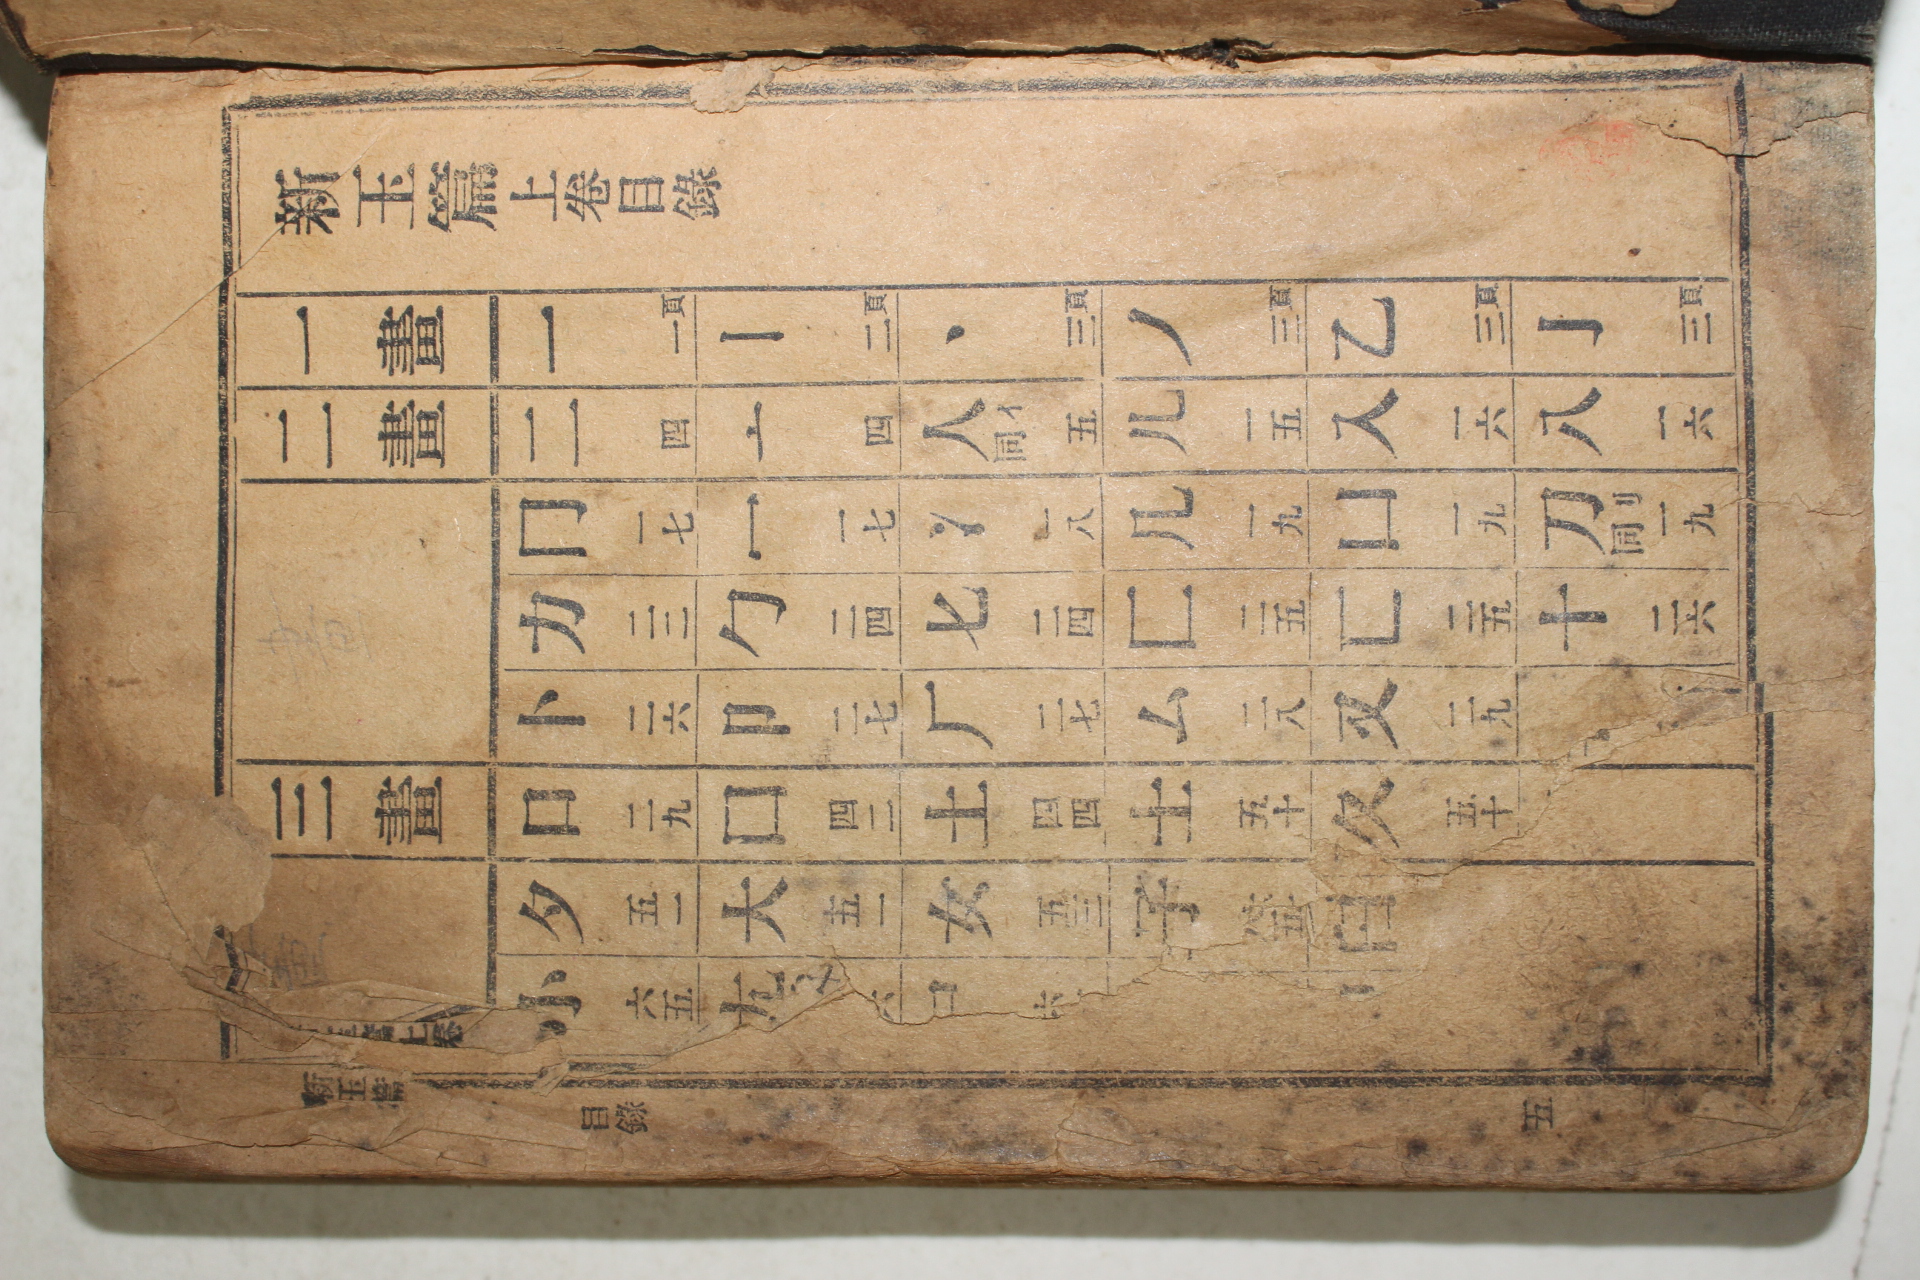 新玉篇上卷目錄
一畫 一 一頁 丨 二頁 丶 三頁 丿 三頁 乙 三頁 亅 三頁
二畫 二 四 亠 四 人 亻同 五 儿 一五 入 一六 八 一六
冂 一七 冖 一七 冫 一八 几 一九 凵 一九 刀 刂同 一九
力 二三 勹 二四 匕 二四 匚 二五 匸 二五 十 二六
卜 二六 卩 二七 厂 二七 厶 二八 又 二九
三畫 口 二九 囗 四三 土 四四 士 五十 夂 五十
夕 五一 大 五一 女 五三 子
小 六五 尢
新玉篇 目錄 五